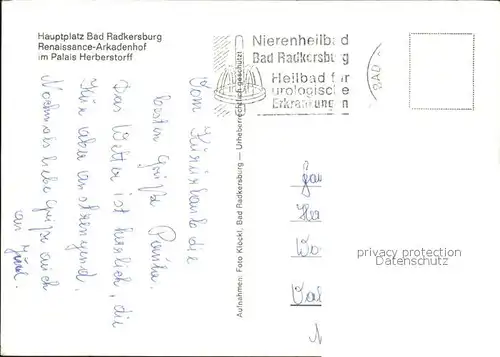 Hauptplatz Bad Radkersburg
Renaissance-Arkadenhof
im Palais Herberstorff
Nierenheilbad
Bad Radkersburg
Heilbad für
urologische
Erkrankungen
BAD
Aufnahmen: Foto Klöckl, Bad Radkersburg — Urheberrechtlich geschützt
Vom Kurürlaub die
besten Grüße
Das Wetter ist herrlich, die
Kur aber anstrengend.
Nochmals liebe Grüße auch
an
privacy protection
Datenschutz